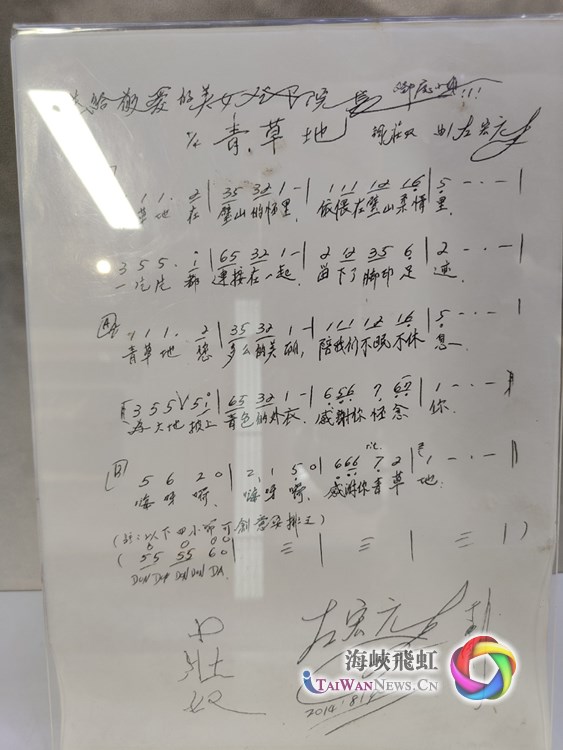 给敬爱的美女
4/4 青草地 曲 左宏元
1 1 . 2 | 35 32 1 - | 111 12 16 | 5 - - - |
草地 在 璧山的怀里. 依偎在璧山柔情里.
3 5 5 . i | 65 32 1 - | 2 12 35 6 | 2 - - - |
一片片 都 连接在一起. 留下了脚印足迹.
1 1 1 . 2 | 35 32 1 - | 111 12 16 | 5 - - - |
青草地 您 多么的美丽, 陪我们不眠不休息
3 5 5 5 i | 65 32 1 - | 656 7 67 | 1 - - - |
为大地披上 青色的外衣. 感谢你怀念你.
rit.
B 5 6 2 0 | 2, 1 5 0 | 666 7 2 | 1 - - - |
嗨呀啊, 嗨呀啊. 感谢你青草地.
(註:以下四小节可创意安排之)
(55 55 60 | 三 | 三 | 三 | )
左宏元
2014.8.1
海峡飛虹
TAIWANNEWS-CN